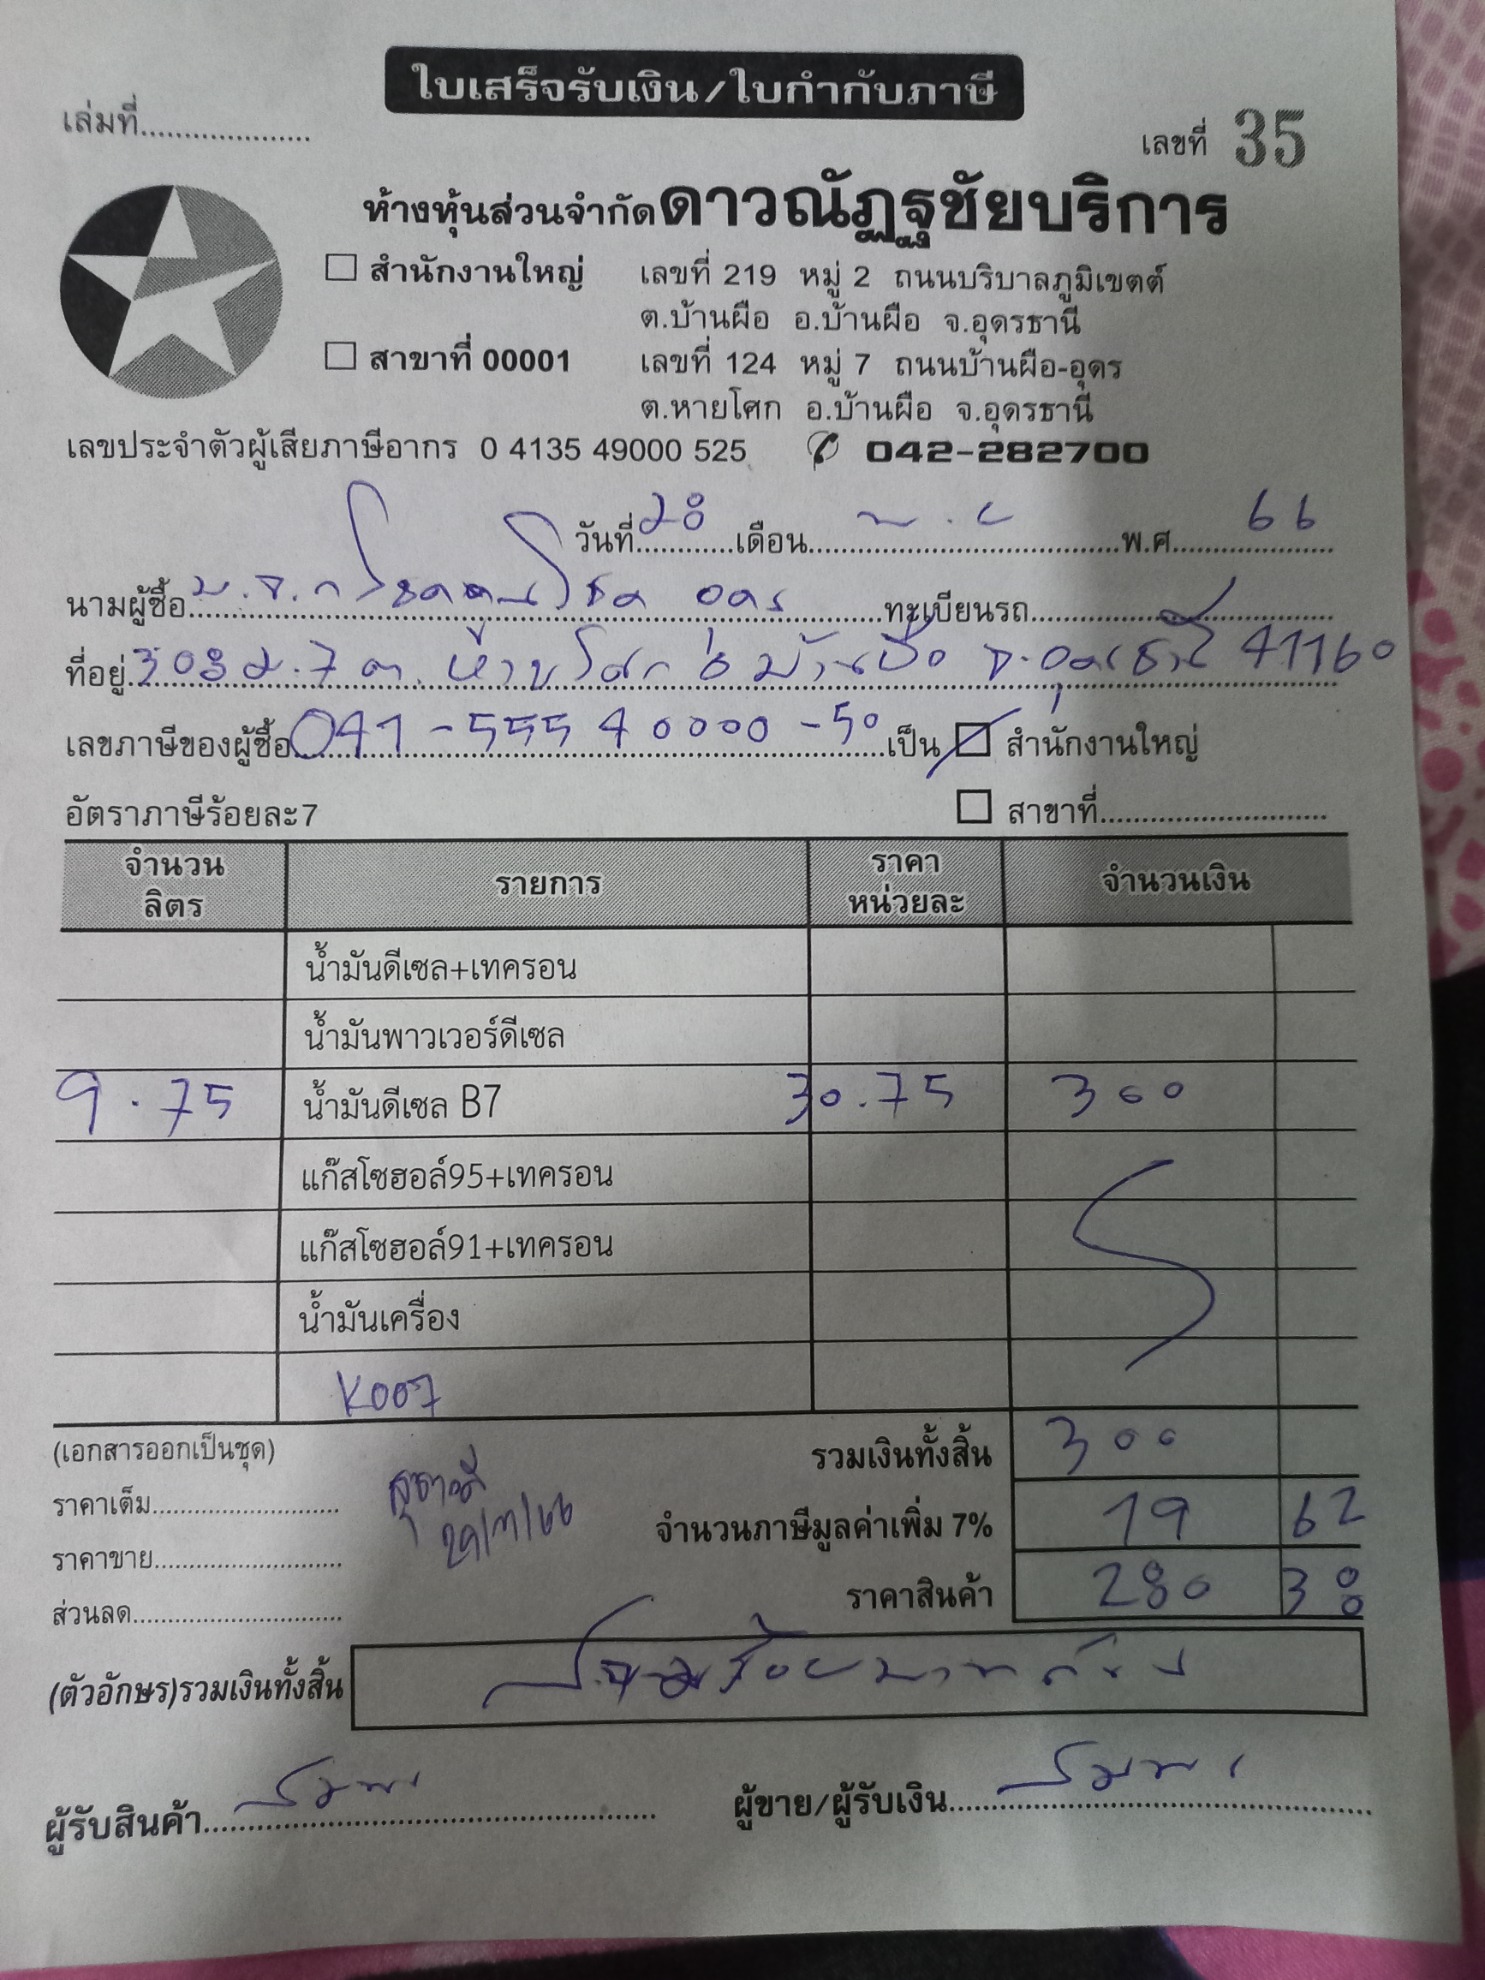 ใบเสร็จรับเงิน/ใบกำกับภาษี
เล่มที่....................
เลขที่ 35
ห้างหุ้นส่วนจำกัดดาวณัฏฐชัยบริการ
สำนักงานใหญ่ เลขที่ 219 หมู่ 2 ถนนบริบาลภูมิเขตต์
ต.บ้านผือ อ.บ้านผือ จ.อุดรธานี
สาขาที่ 00001 เลขที่ 124 หมู่ 7 ถนนบ้านผือ-อุดร
ต.หายโศก อ.บ้านผือ จ.อุดรธานี
เลขประจำตัวผู้เสียภาษีอากร 0 4135 49000 525 042-282700
วันที่ 28 เดือน พ.ศ. 66
นามผู้ซื้อ อุดร ทะเบียนรถ
ที่อยู่ 308 ม.7 ต.หายโศก อ บ้านผือ จ.อุดรธานี 41160
เลขภาษีของผู้ซื้อ 041-555 40000-50 เป็น สำนักงานใหญ่
อัตราภาษีร้อยละ7 สาขาที่
จำนวนลิตร รายการ ราคาหน่วยละ จำนวนเงิน
น้ำมันดีเซล+เทครอน
น้ำมันพาวเวอร์ดีเซล
9.75 น้ำมันดีเซล B7 30.75 300
แก๊สโซฮอล์95+เทครอน
แก๊สโซฮอล์91+เทครอน
น้ำมันเครื่อง
K007
(เอกสารออกเป็นชุด) รวมเงินทั้งสิ้น 300
ราคาเต็ม
จำนวนภาษีมูลค่าเพิ่ม 7% 19 62
ราคาขาย
ราคาสินค้า 280 38
ส่วนลด
(ตัวอักษร)รวมเงินทั้งสิ้น สามร้อยบาทถ้วน
ผู้รับสินค้า ผู้ขาย/ผู้รับเงิน